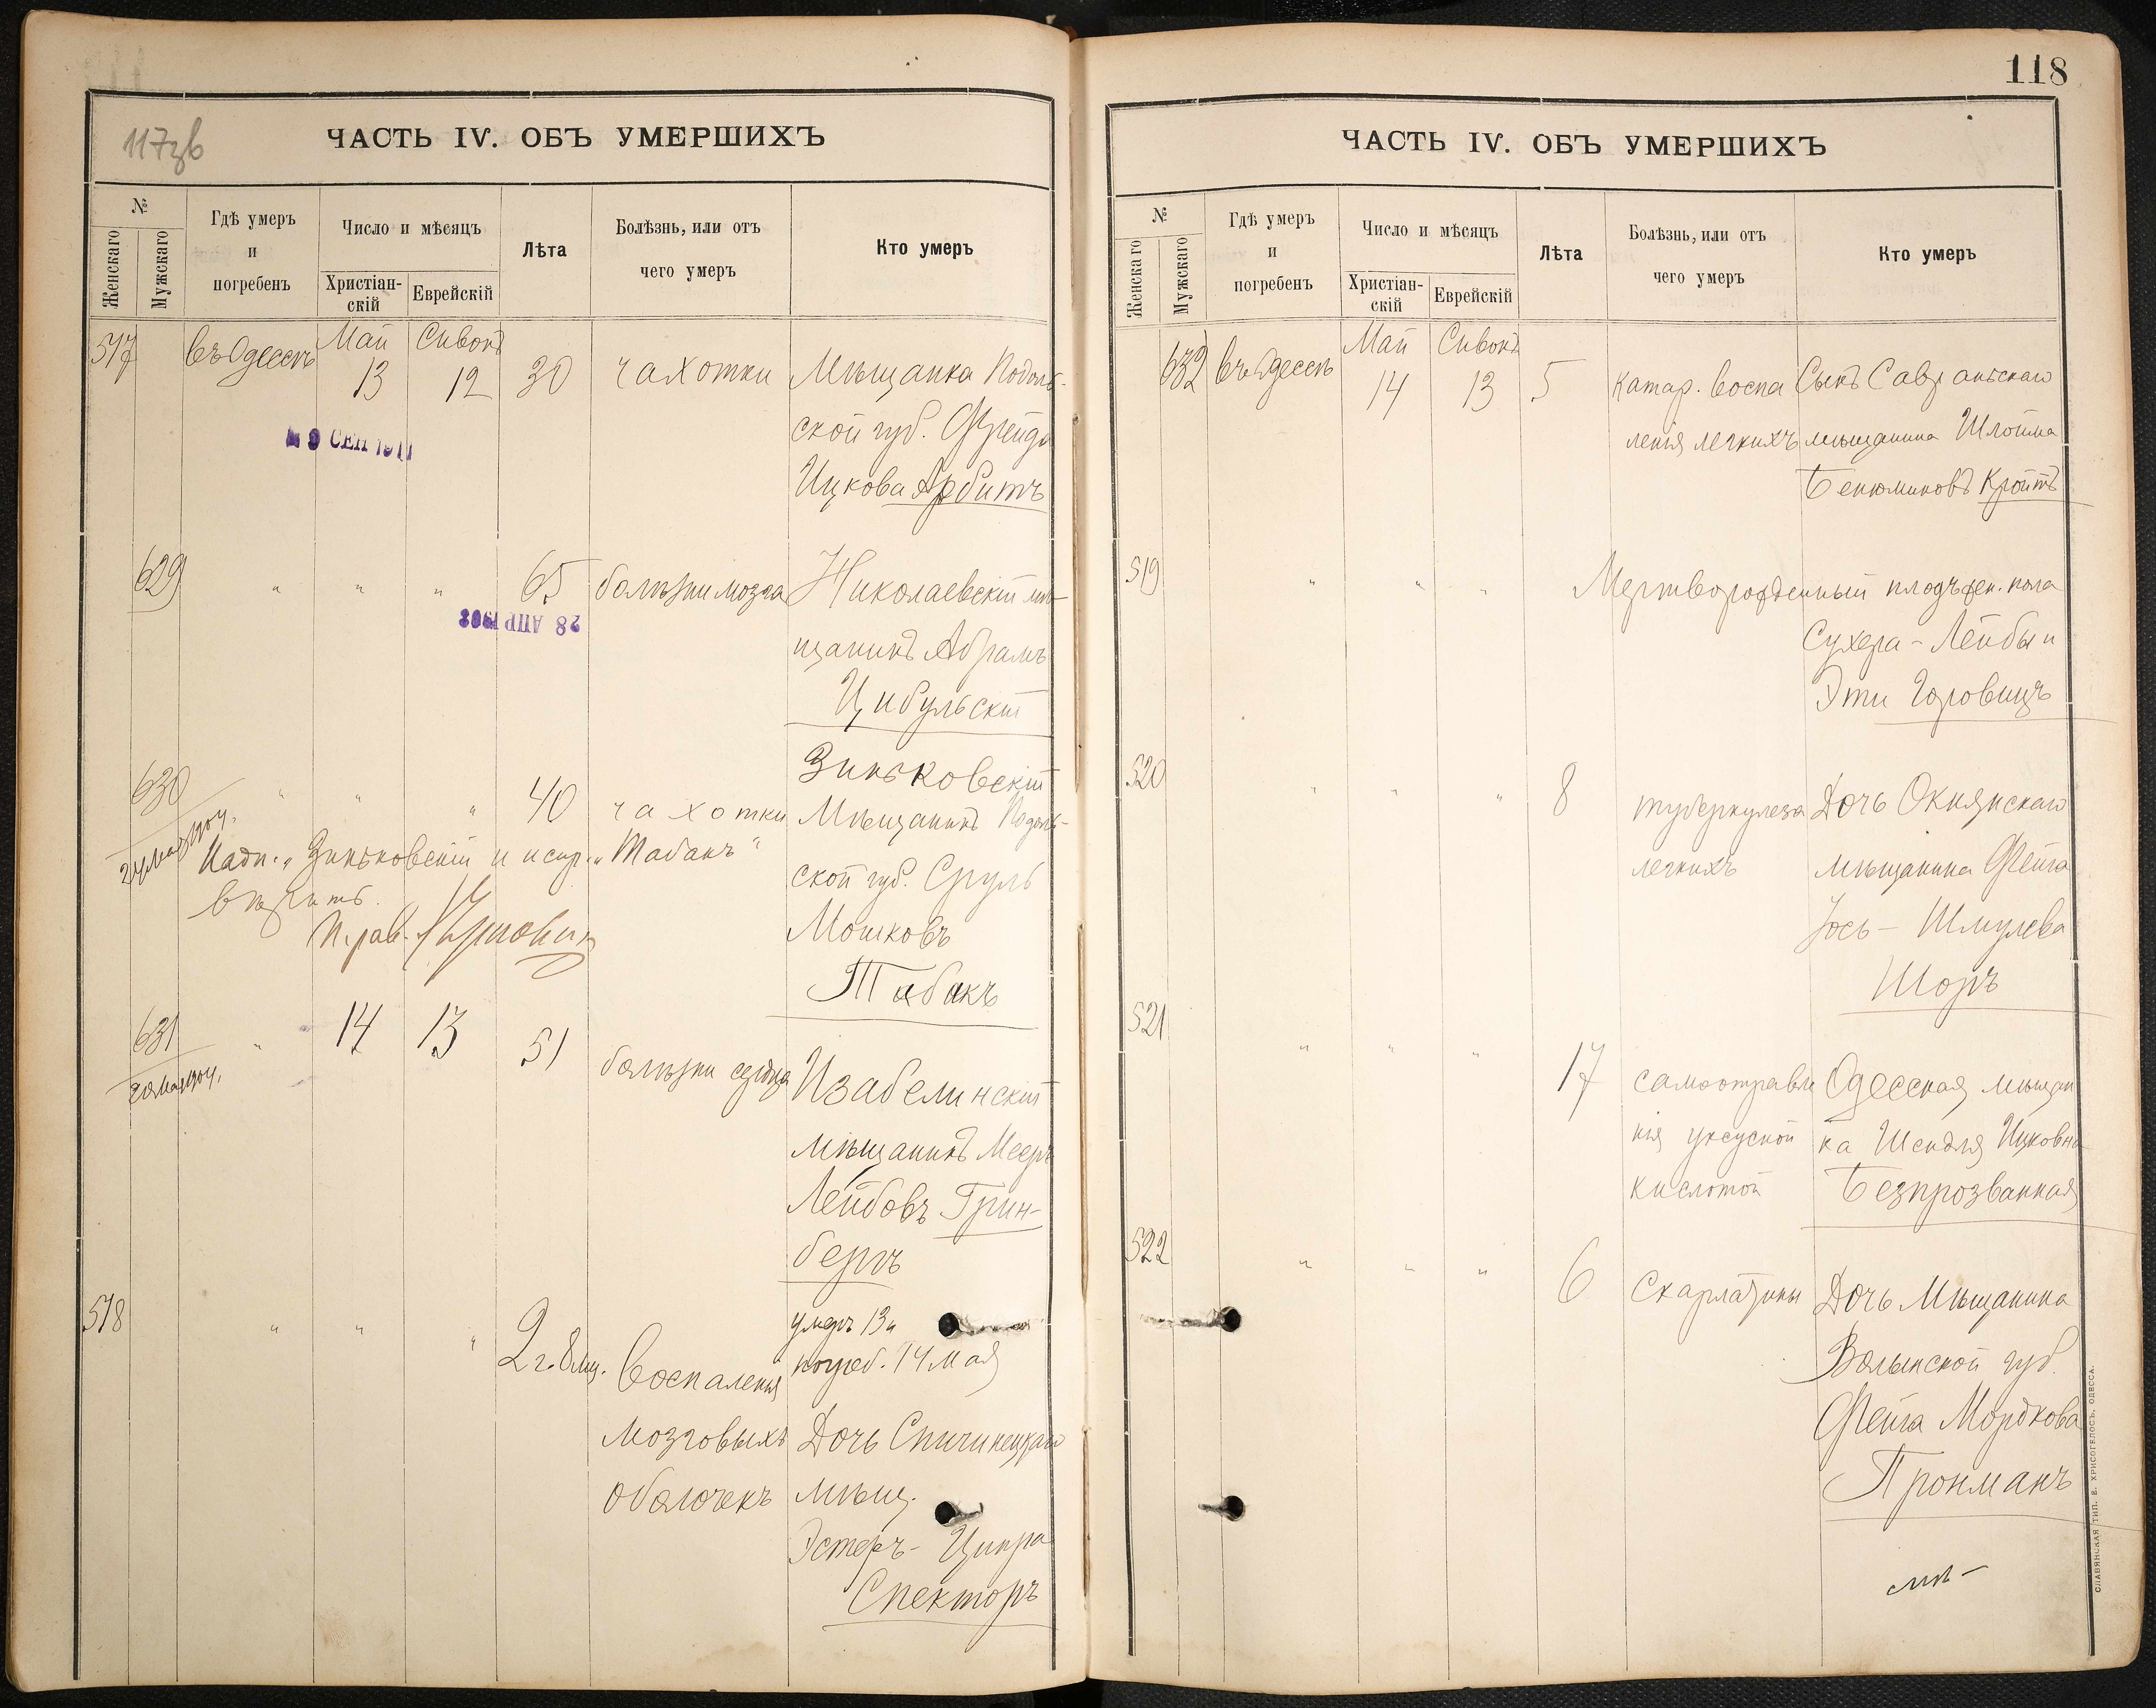 117зв
ЧАСТЬ IV. ОБЪ УМЕРШИХЪ
№
Женскаго
Мужскаго
Гдѣ умеръ
и
погребенъ
Число и мѣсяцъ
Христіан-
скій
Еврейскій
Лѣта
Болѣзнь, или отъ
чего умеръ
Кто умеръ
517 въ Одессѣ Май 13 Сивонъ 12 30 чахотки Мѣщанка Подоль-
ской губ. Фрейда
Ицкова Арбитъ
9 СЕН 1911
629 " " " 65 болѣзни мозга Николаевскій мѣ-
щанинъ Абрамъ
Цибульскій
28 АПР 1908
630 " " " 40 чахотки Зиньковскій
Мѣщанинъ Подоль-
ской губ. Сруль
Мошковъ
Табакъ
Надп. „Зиньковскій и испр. „Табакъ"
вѣрить.
631 " 14 13 51 болѣзни сердца Изабелинскій
мѣщанинъ Мееръ
Лейбовъ Грин-
бергъ
518 " " " 2 г. 8 мц. Воспаленія
мозговыхъ
оболочекъ
умеръ 13 и
погреб. 14 мая
Дочь Спичинецкаго
мѣщ.
Эстеръ - Ципра
Спекторъ
118
ЧАСТЬ IV. ОБЪ УМЕРШИХЪ
№
Женскаго
Мужскаго
Гдѣ умеръ
и
погребенъ
Число и мѣсяцъ
Христіан-
скій
Еврейскій
Лѣта
Болѣзнь, или отъ
чего умеръ
Кто умеръ
632 въ Одессѣ Май 14 Сивонъ 13 5 катар. воспа Сынъ Савранскаго
ленія легкихъ мѣщанина Шлойма
Бенюминовъ Кройтъ
519 " " " Мертворожденный плодъ жен. пола
Сухера - Лейбы и
Эти Горовицъ
520 " " " 8 туберкулеза Дочь Окнянскаго
легкихъ мѣщанина Фейга
Іось - Шмулева
Шоръ
521 " " " 17 самоотравле Одесская мѣщан
нія уксусной ка Шендля Ицковна
кислотой Безпрозванная
522 " " " 6 Скарлатины Дочь Мѣщанина
Волынской губ.
Фейга Мордкова
Тронманъ
СЛАВЯНСКАЯ ТИП. Е. ХРИСОГЕЛОСЪ, ОДЕССА.